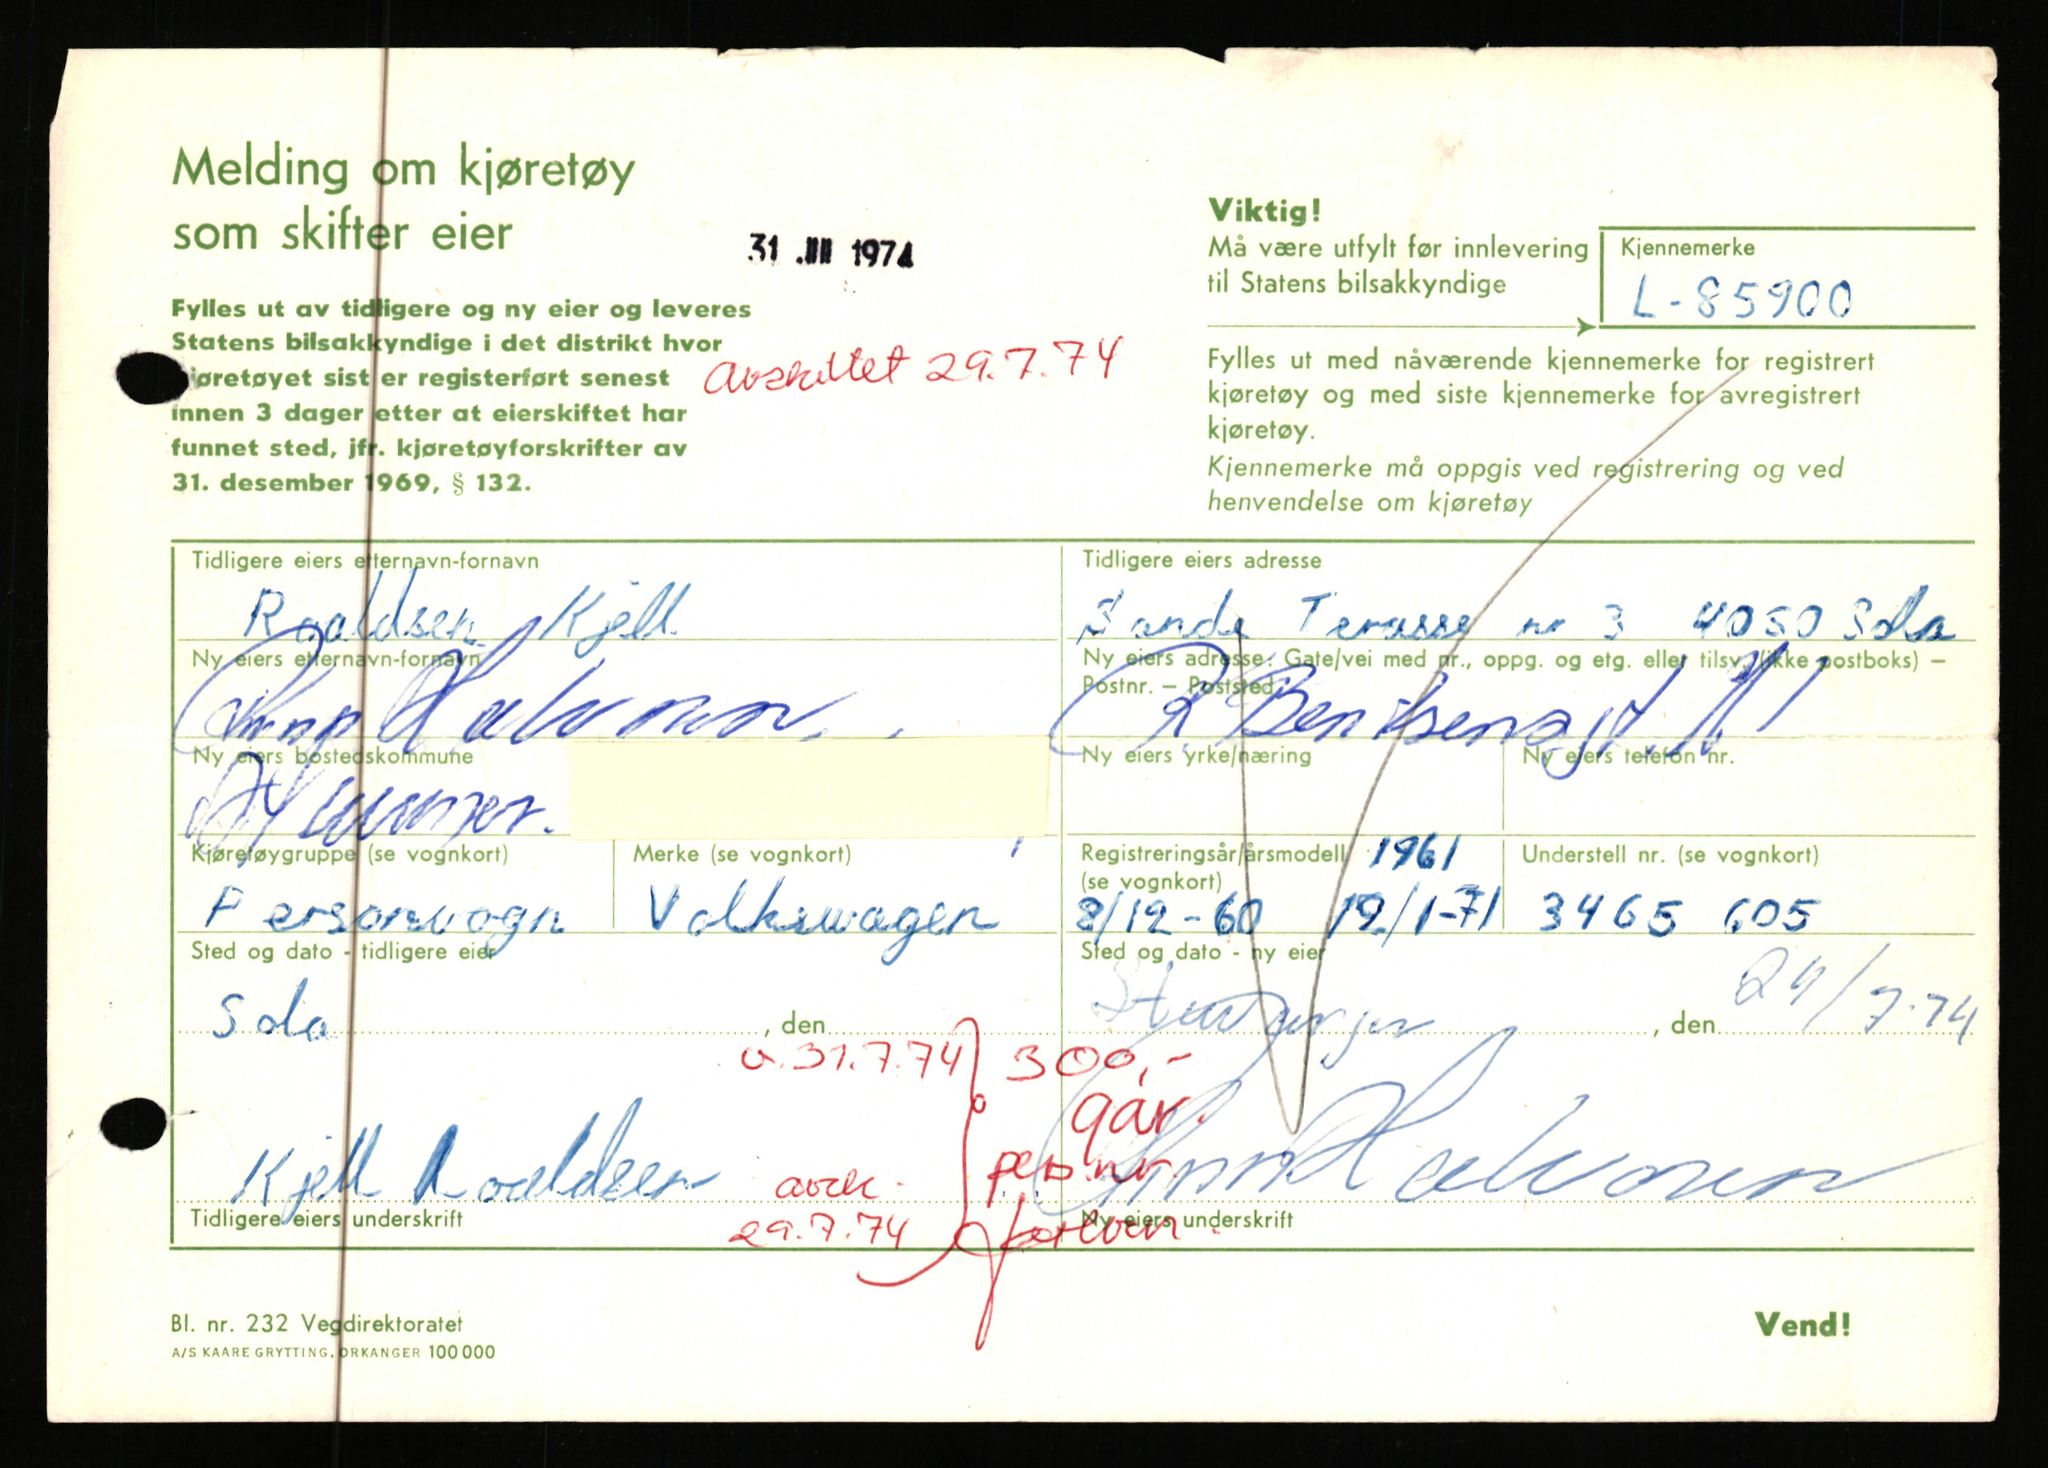 Melding om kjøretøy
som skifter eier
31 1974
Fylles ut av tidligere og ny eier og leveres
Statens bilsakkyndige i det distrikt hvor
kjøretøyet sist er registerført senest
innen 3 dager etter at eierskiftet har
funnet sted, jfr. kjøretøyforskrifter av
31. desember 1969, § 132.
avskiltet 29.7.74
Viktig!
Må være utfylt før innlevering
til Statens bilsakkyndige
Kjennemerke
L-85900
Fylles ut med nåværende kjennemerke for registrert
kjøretøy og med siste kjennemerke for avregistrert
kjøretøy.
Kjennemerke må oppgis ved registrering og ved
henvendelse om kjøretøy
Tidligere eiers etternavn-fornavn
Roaldsen Kjell
Tidligere eiers adresse
Sande Terasse nr 3 4050 Sola
Ny eiers etternavn-fornavn
Halvorsen
Ny eiers adresse: Gate/vei med nr., oppg. og etg. eller tilsv. (ikke postboks) –
Postnr. – Poststed
Bentsensgt.
Ny eiers bostedskommune
Ny eiers yrke/næring
Ny eiers telefon nr.
Kjøretøygruppe (se vognkort)
Personvogn
Merke (se vognkort)
Volkswagen
Registreringsår/årsmodell 1961
(se vognkort)
8/12-60 19/1-71
Understell nr. (se vognkort)
3465 605
Sted og dato - tidligere eier
Sola , den
Sted og dato - ny eier
Stavanger , den 29/7.74
u. 31.7.74 300,-
gar.
pers.nr
avsk.
29.7.74
Kjell Roaldsen
Tidligere eiers underskrift
Halvorsen
Ny eiers underskrift
Bl. nr. 232 Vegdirektoratet
A/S KAARE GRYTTING, ORKANGER 100 000
Vend!